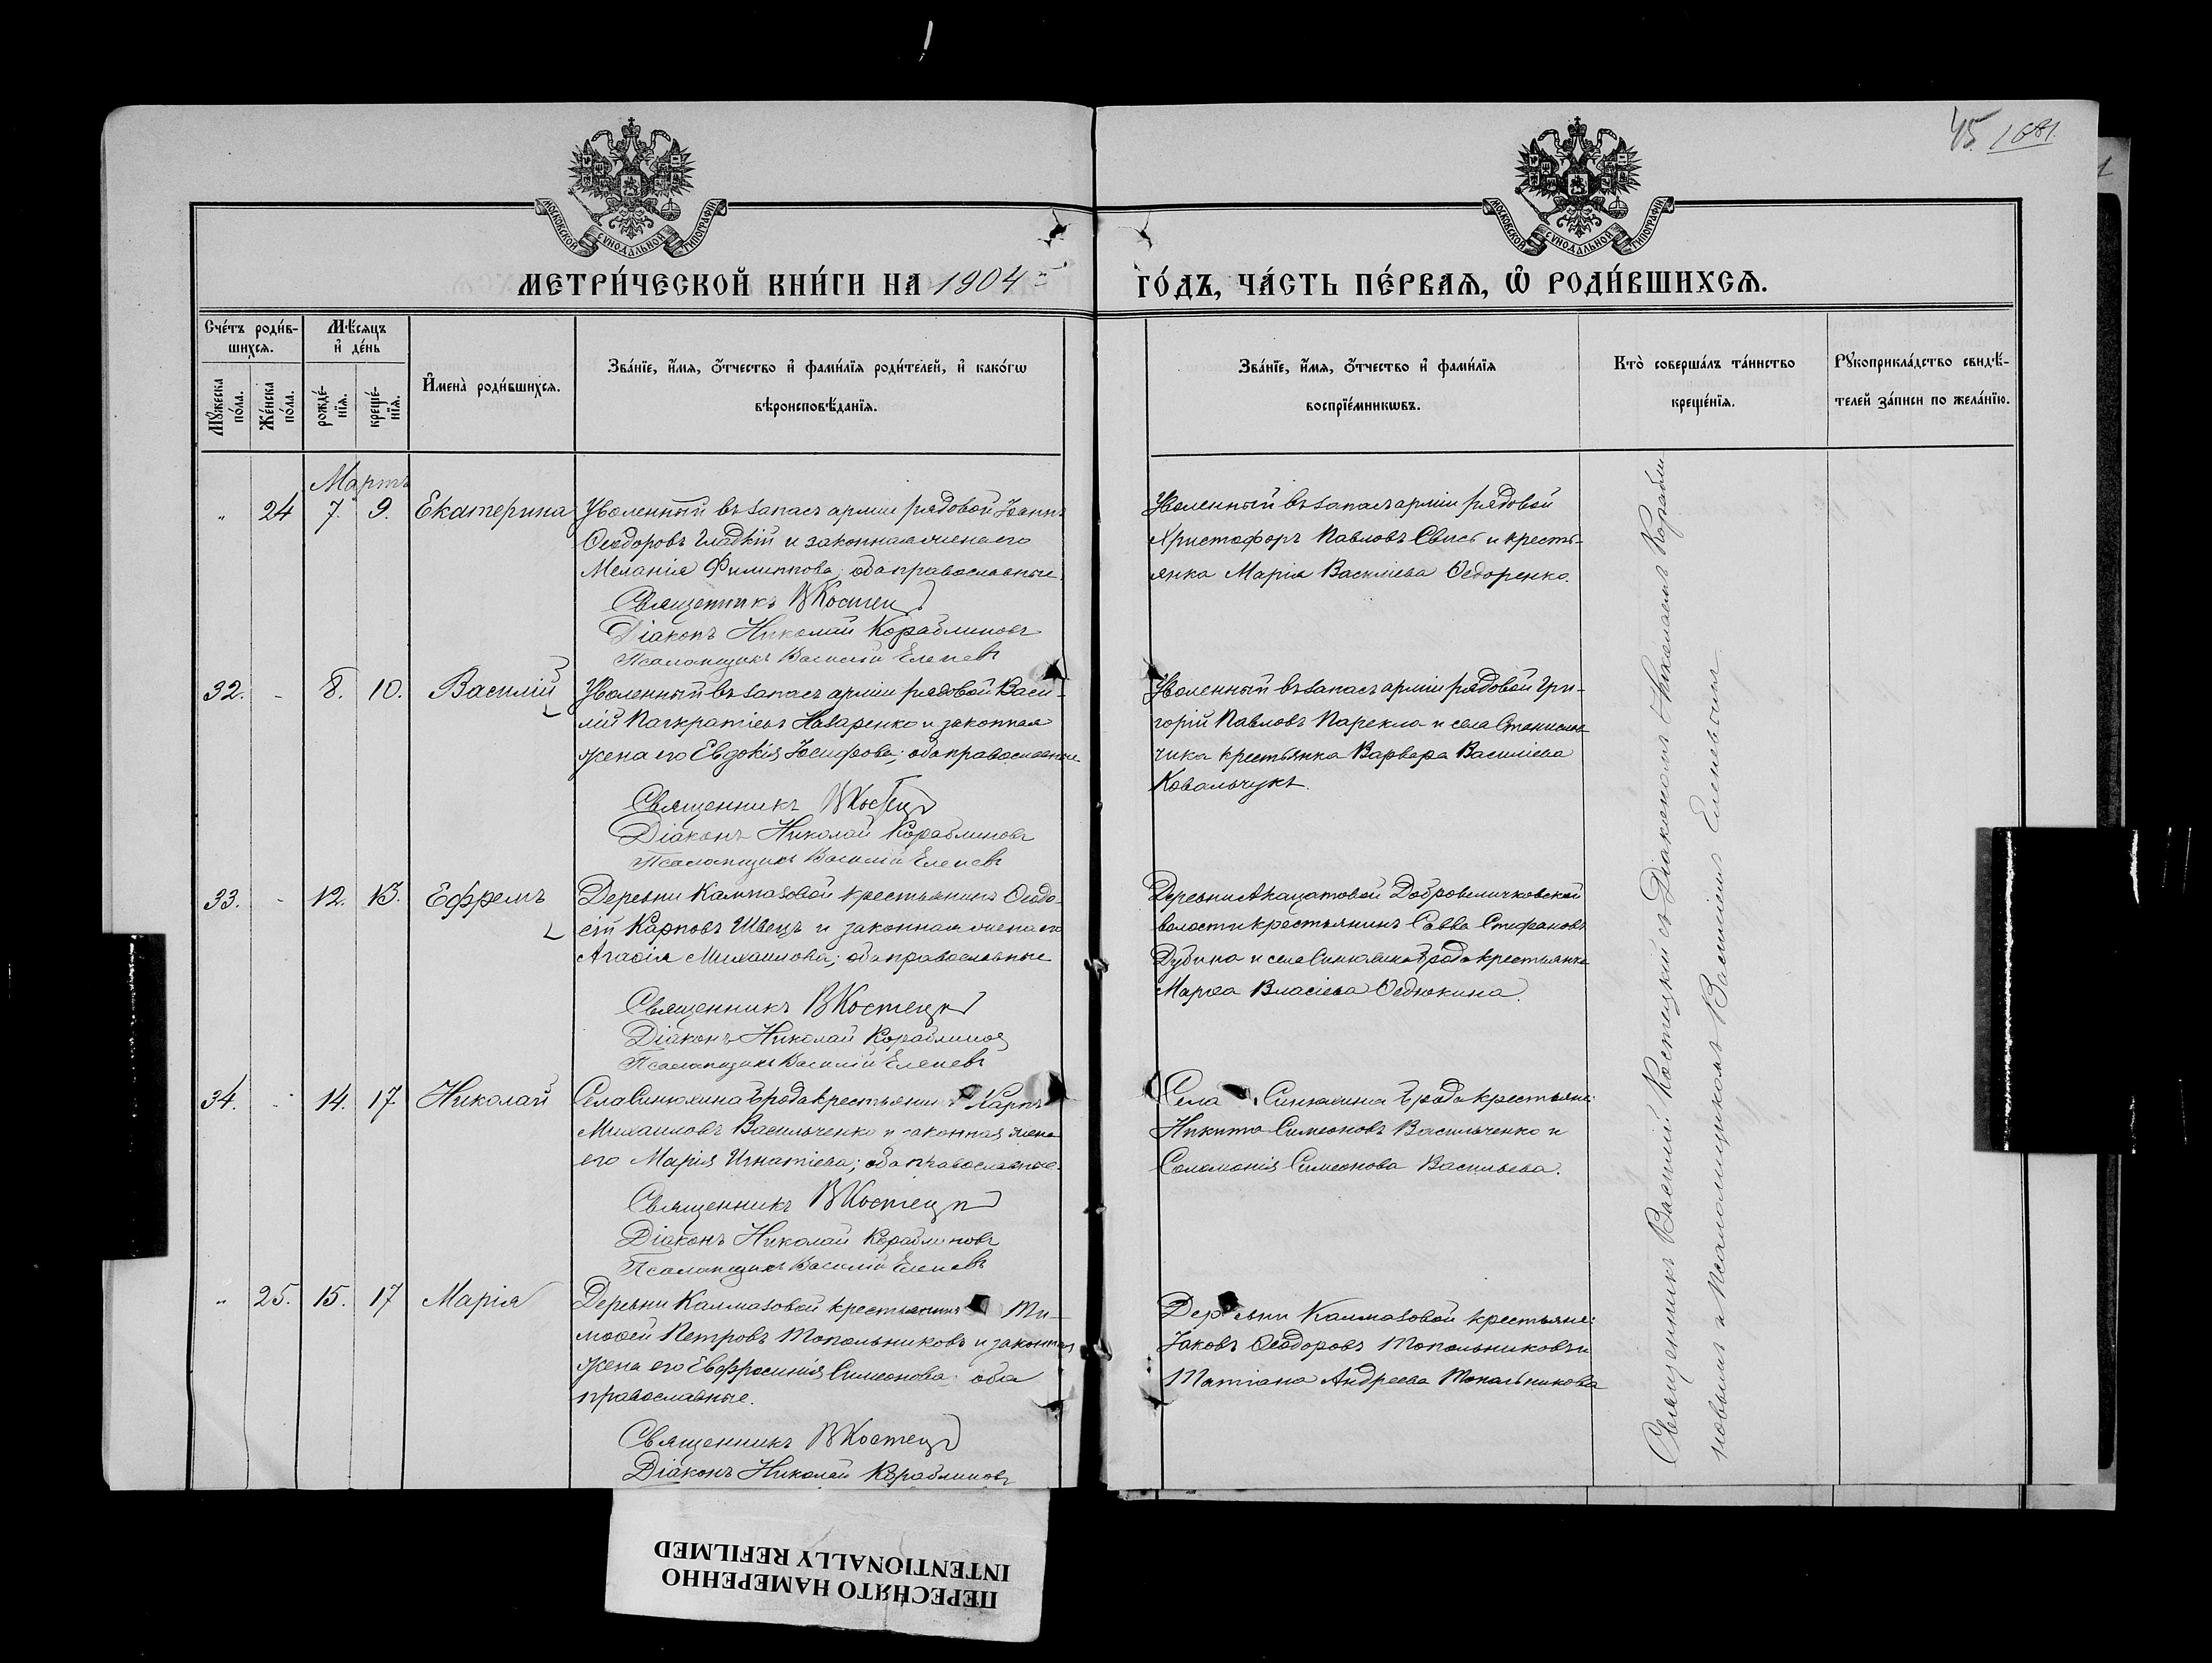 45 1681.
МОСКОВСКОЙ СѴНОДАЛЬНОЙ ТИПОГРАФІИ
МОСКОВСКОЙ СѴНОДАЛЬНОЙ ТИПОГРАФІИ
МЕТРИ́ЧЕСКОЙ КНИ́ГИ НА 1904 ГО́ДЪ, ЧА́СТЬ ПЕ́РВАѦ, Ѡ҆ РОДИ́ВШИХСѦ.
Сче́тъ роди́в-
шихсѧ.
Мꙋ́жеска по́ла.
Же́нска по́ла.
Мѣ́сѧцъ
и҆ де́нь
рожде́-
нїѧ.
креще́-
нїѧ.
И҆мена̀ роди́вшихсѧ.
Зва́нїе, и҆́мѧ, ѻ҆́тчество и҆ фами́лїѧ роди́телей, и҆ како́гѡ
вѣроисповѣ́данїѧ.
Зва́нїе, и҆́мѧ, ѻ҆́тчество и҆ фами́лїѧ
воспрїе́мникѡвъ.
Кто̀ соверша́лъ та́инство
креще́нїѧ.
Рꙋкоприкла́дство свидѣ́-
телей за́писи по жела́нїю.
Мартъ
„ 24 7. 9. Екатерина
Уволенный въ запасъ арміи рядовой Іоаннъ
Ѳеодоровъ Гладкій и законная жена его
Меланія Филиппова; оба православные.
Священникъ В Костец
Діаконъ Николай Кораблиновъ
Псаломщикъ Василій Еленевъ
Уволенный въ запасъ арміи рядовой
Христофоръ Павловъ Свись и кресть-
янка Марія Василіева Ѳедоренко.
32. - 8. 10. Василій
Уволенный въ запасъ арміи рядовой Васи-
лій Панкратіевъ Назаренко и законная
жена его Евдокія Іосифова; оба православные
Священникъ В Костец
Діаконъ Николай Кораблиновъ
Псаломщикъ Василій Еленевъ
Уволенный въ запасъ арміи рядовой Гри-
горій Павловъ Парекла и села Станислав
чика крестьянка Варвара Василіева
Ковальчукъ.
33. - 12. 13. Ефремъ
Деревни Калмазовой крестьянинъ Ѳеодо-
сій Карповъ Швецъ и законная жена его
Агаѳія Михаилова; оба православные
Священникъ В Костецк
Діаконъ Николай Кораблинов
Псаломщикъ Василій Еленевъ
Деревни Акацатовой Добровеличковской
волости крестьянинъ Савва Стефановъ
Дубина и села Синюхина Брода крестьянка
Марѳа Власіева Ѳедюкина.
34. - 14. 17 Николай
Села Синюхина Брода крестьянин Карпъ
Михаиловъ Васильченко и законная жена
его Марія Игнатіева; оба православные.
Священникъ В Костецк
Діаконъ Николай Кораблиновъ
Псаломщикъ Василій Еленевъ
Села Синюхина Брода крестьяне:
Никита Симеоновъ Васильченко и
Соломонія Симеонова Васильева.
„ 25. 15. 17 Марія
Деревни Калмазовой крестьянинъ Ти-
моѳей Петровъ Топольниковъ и законная
жена его Евфросинія Симеонова; оба
православные.
Священникъ В Костец
Діаконъ Николай Кораблиновъ
Деревни Калмазовой крестьяне:
Іаковъ Ѳеодоровъ Топольниковъ и
Татіана Андреева Топольникова
Священникъ Василій Костецкій съ Діакономъ Николаемъ Корабли
новымъ и Псаломщикомъ Василіемъ Еленевымъ.
ПЕРЕСНЯТО НАМЕРЕННО
INTENTIONALLY REFILMED